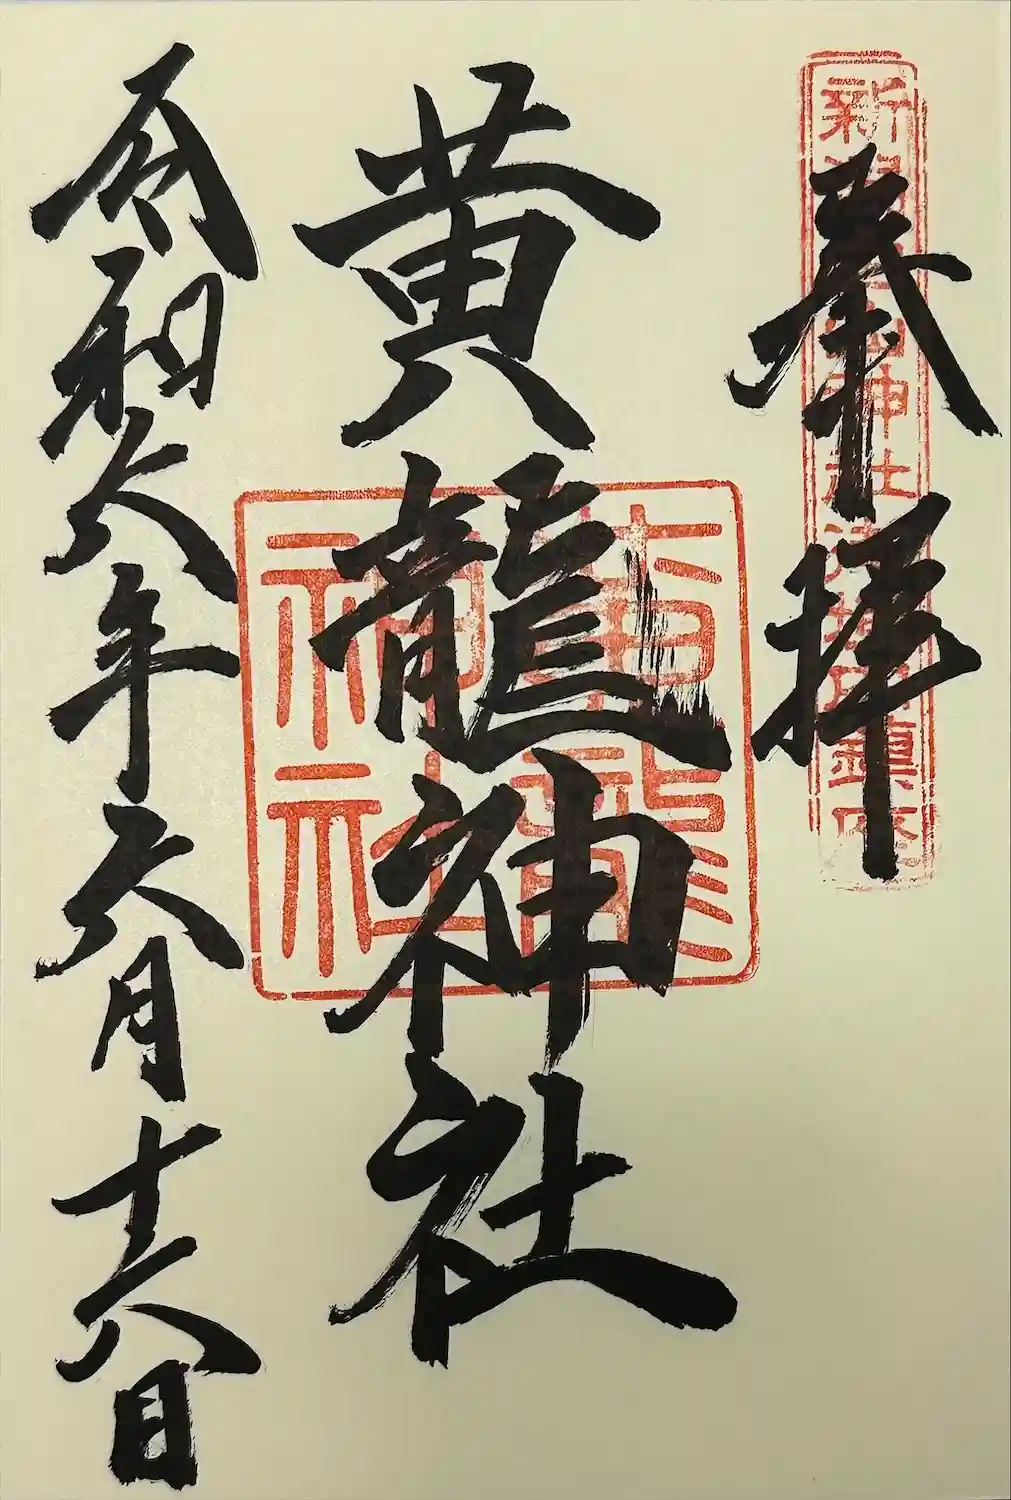 奉拝
新
山神社
黄龍神社
黄龍神社
令和六年六月十六日